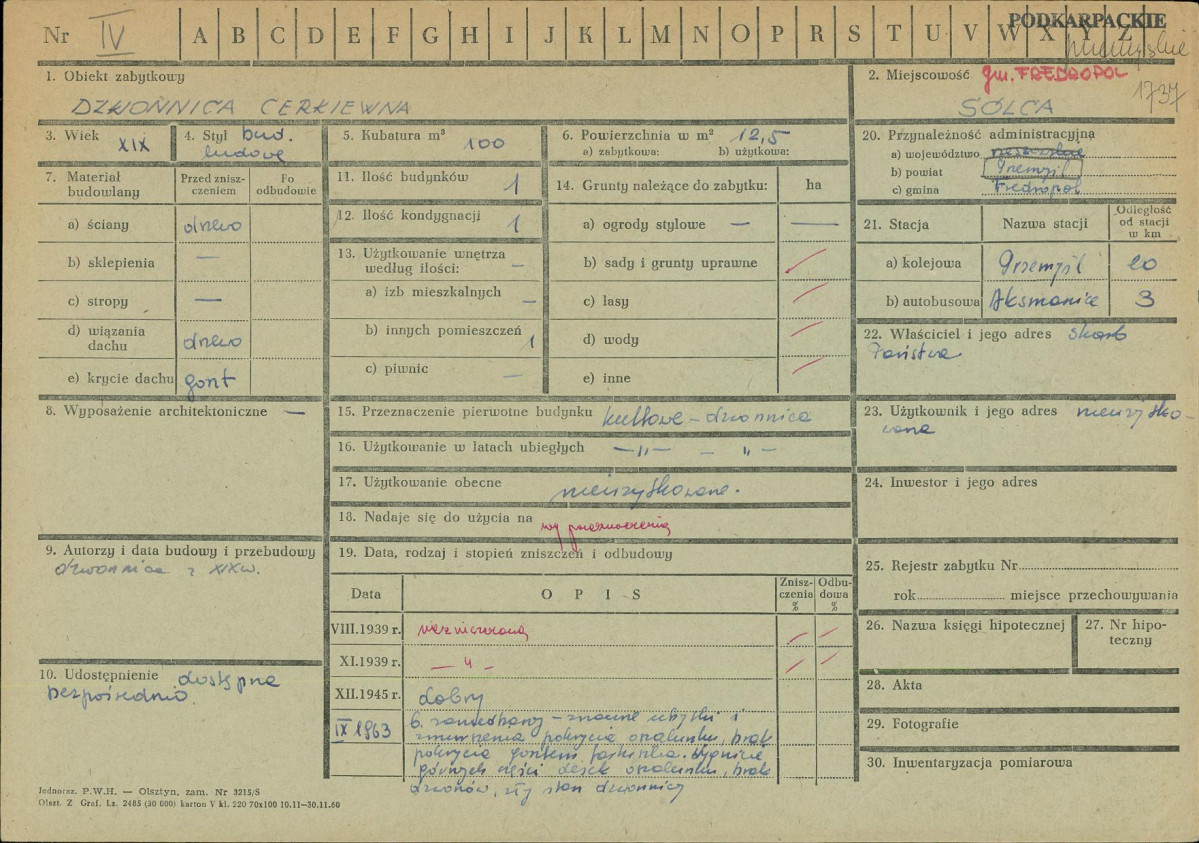 Nr IV A B C D E F G H I J K L M N O P R S T U V W X Y Z PODKARPACKIE
przemyskie
1. Obiekt zabytkowy
DZWONNICA CERKIEWNA
2. Miejscowość gm. FREDROPOL
1737
SÓLCA
3. Wiek XIX
4. Styl bud. ludowe
5. Kubatura m³ 100
6. Powierzchnia w m² 12,5
a) zabytkowa: b) użytkowa:
7. Materiał budowlany
Przed zniszczeniem
Po odbudowie
a) ściany drewo
b) sklepienia —
c) stropy —
d) wiązania dachu drewo
e) krycie dachu gont
8. Wyposażenie architektoniczne —
9. Autorzy i data budowy i przebudowy
dzwonnica z XIX w.
10. Udostępnienie dostępna
bezpośrednio
11. Ilość budynków 1
12. Ilość kondygnacji 1
13. Użytkowanie wnętrza według ilości: —
a) izb mieszkalnych —
b) innych pomieszczeń 1
c) piwnic —
14. Grunty należące do zabytku: ha
a) ogrody stylowe — —
b) sady i grunty uprawne
c) lasy
d) wody
e) inne
15. Przeznaczenie pierwotne budynku kultowe – dzwonnica
16. Użytkowanie w latach ubiegłych —„— – „ –
17. Użytkowanie obecne nieużytkowane.
18. Nadaje się do użycia na wg przeznaczenia
19. Data, rodzaj i stopień zniszczeń i odbudowy
Data OPIS Zniszczenia % Odbudowa %
VIII.1939 r. niezniszczona
XI.1939 r. — „ –
XII.1945 r. dobry
IX 1963 b. zaniedbany – znaczne ubytki i
zmurszenia pokrycia oszalunku, brak
pokrycia gontem
górnych części desek oszalunku, brak
dzwonów, zły stan dzwonnicy
20. Przynależność administracyjna
a) województwo rzeszowskie
b) powiat Przemyśl
c) gmina Fredropol
21. Stacja
Nazwa stacji
Odległość od stacji w km
a) kolejowa Przemyśl 20
b) autobusowa Aksmanice 3
22. Właściciel i jego adres Skarb
Państwa
23. Użytkownik i jego adres nieużytko-
wana
24. Inwestor i jego adres
25. Rejestr zabytku Nr
rok miejsce przechowywania
26. Nazwa księgi hipotecznej
27. Nr hipoteczny
28. Akta
29. Fotografie
30. Inwentaryzacja pomiarowa
Jednoraz. P.W.H. — Olsztyn, zam. Nr 3215/S
Olszt. Z Graf. Lz. 2485 (30 000) karton V kl. 220 70x100 10.11—30.11.60